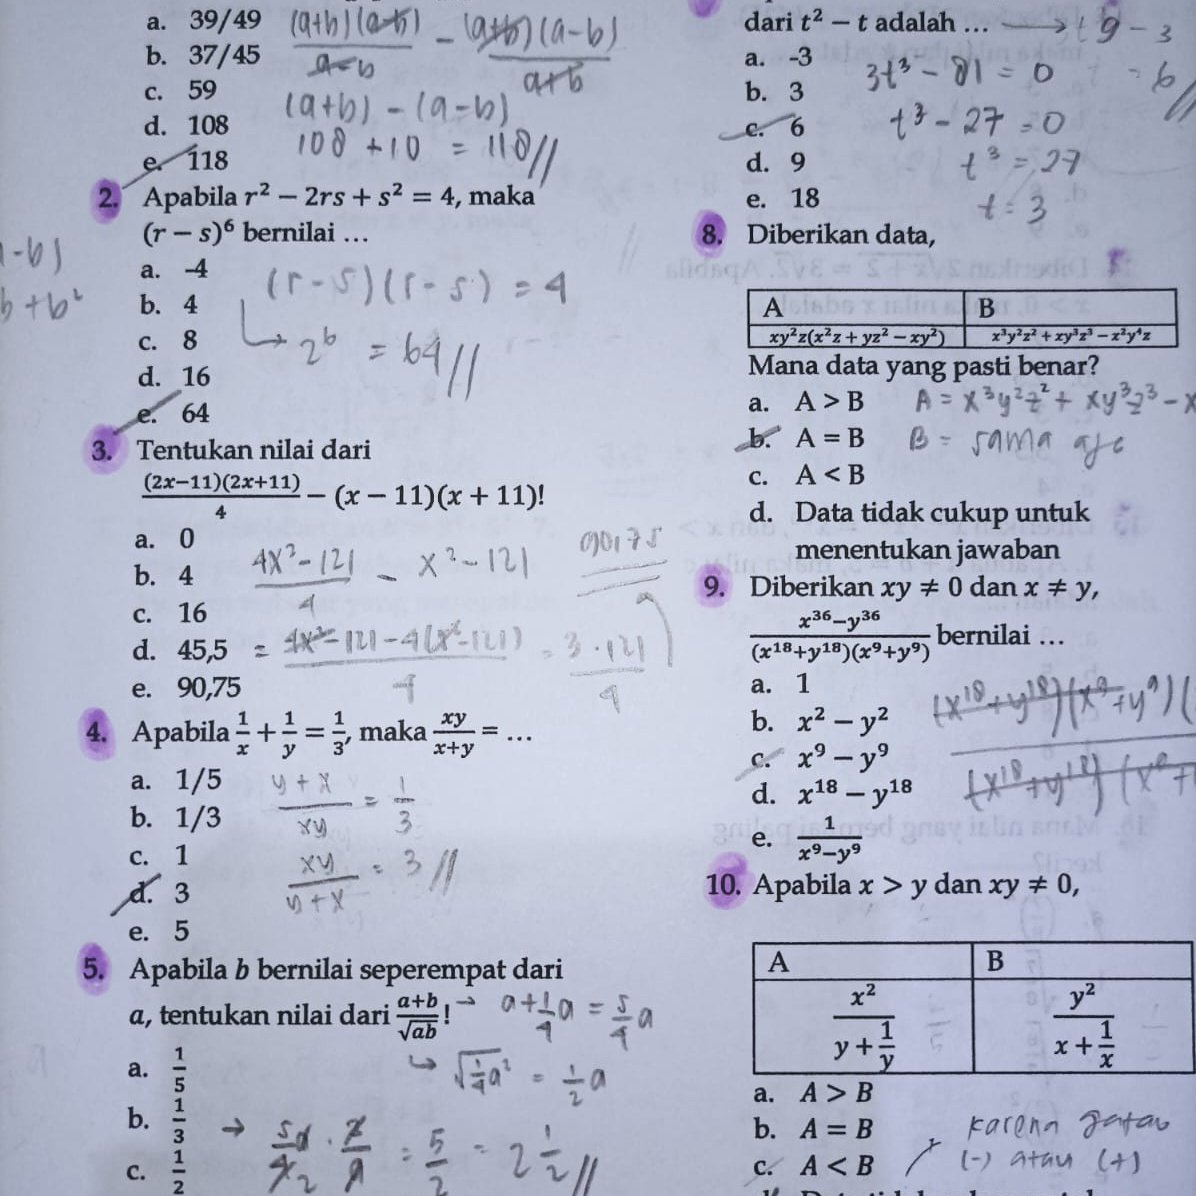 a. 39/49
b. 37/45
c. 59
d. 108
e. 118
(a+b)(a-b) / a-b - (a+b)(a-b) / a+b
(a+b) - (a-b)
108 + 10 = 118 //
2. Apabila r² − 2rs + s² = 4, maka
(r − s)⁶ bernilai …
a. -4
b. 4
c. 8
d. 16
e. 64
(r-s)(r-s) = 4
↳ 2⁶ = 64 //
3. Tentukan nilai dari
(2x−11)(2x+11) / 4 − (x − 11)(x + 11)!
a. 0
b. 4
c. 16
d. 45,5
e. 90,75
4x²-121 / 4 - x²-121
= 4x²-121-4(x²-121) / 4 = 3.121 / 4
90,75
4. Apabila 1/x + 1/y = 1/3, maka xy/x+y = …
a. 1/5
b. 1/3
c. 1
d. 3
e. 5
y+x / xy = 1/3
xy / y+x = 3 //
5. Apabila b bernilai seperempat dari
a, tentukan nilai dari a+b/√ab !
a. 1/5
b. 1/3
c. 1/2
→ a+1/4a = 5/4a
↳ √1/4a² = 1/2a
→ 5a/4 . 2/a = 5/2 = 2 1/2 //
dari t² − t adalah …
a. -3
b. 3
c. 6
d. 9
e. 18
→ 9 - 3
= 6 //
3t³ - 81 = 0
t³ - 27 = 0
t³ = 27
t = 3
8. Diberikan data,
A B
xy²z(x²z + yz² − xy²) x³y²z² + xy³z³ − x²y⁴z
Mana data yang pasti benar?
a. A > B
b. A = B
c. A < B
d. Data tidak cukup untuk
menentukan jawaban
A = x³y²z² + xy³z³ - x
B = sama aje
9. Diberikan xy ≠ 0 dan x ≠ y,
x³⁶−y³⁶ / (x¹⁸+y¹⁸)(x⁹+y⁹) bernilai …
a. 1
b. x² − y²
c. x⁹ − y⁹
d. x¹⁸ − y¹⁸
e. 1 / x⁹−y⁹
(x¹⁸+y¹⁸)(x⁹+y⁹)(
(x¹⁸+y¹⁸)(x⁹+
10. Apabila x > y dan xy ≠ 0,
A B
x² / y + 1/y y² / x + 1/x
a. A > B
b. A = B
c. A < B
karena gatau
(-) atau (+)